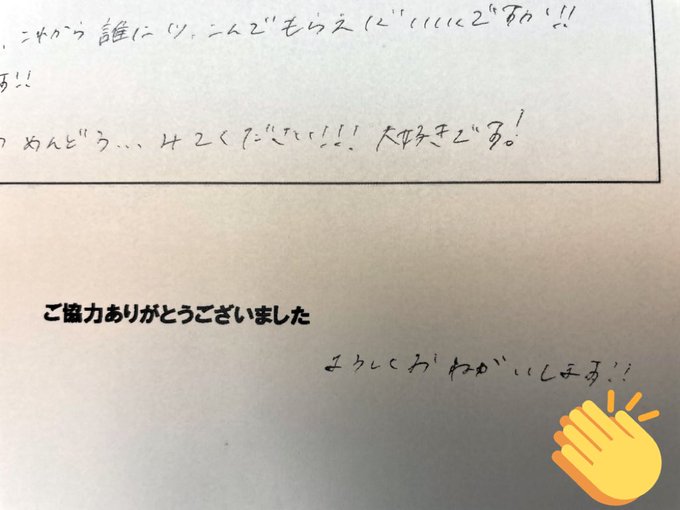 、これから誰にリ、こんでもらえばいいんですか!!
す!!
めんどう...みてください!!! 大好きです!
ご協力ありがとうございました
よろしくおねがいします!!